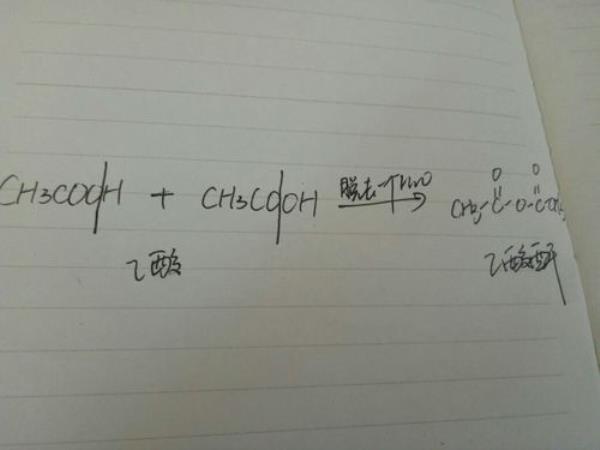 CH3COOH + CH3COOH 脱去一个H2O → CH3-C-O-C-CH3
O O
乙酸 乙酸酐